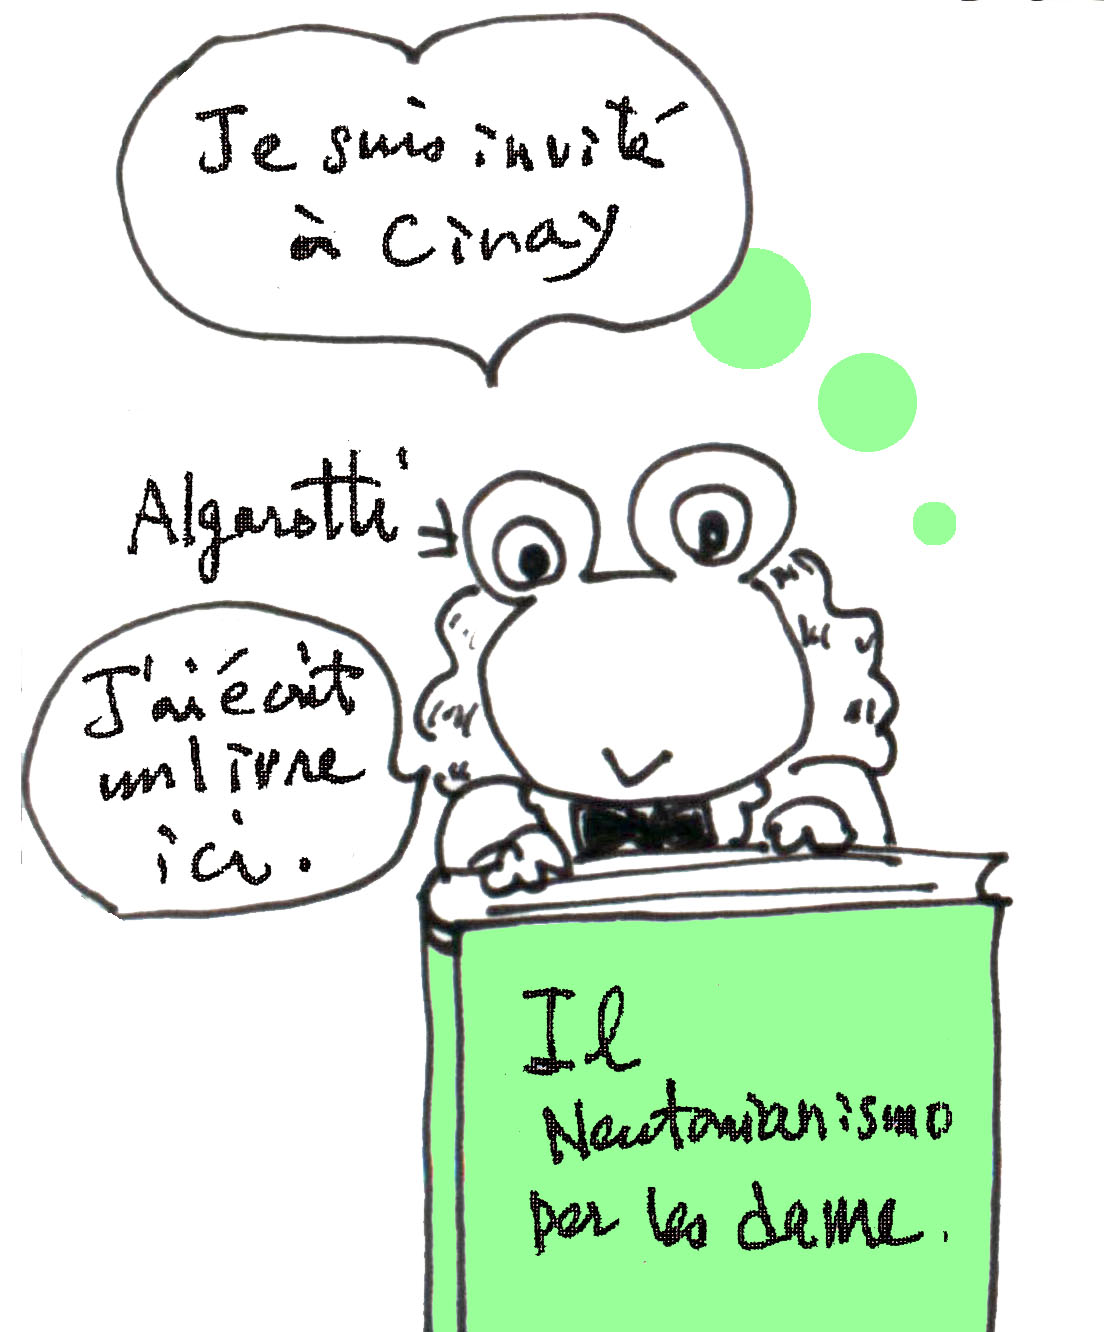 Je suis invité
à Ciray
Algarotti
J'ai écrit
un livre
ici.
Il
Neutonianismo
per les dame.